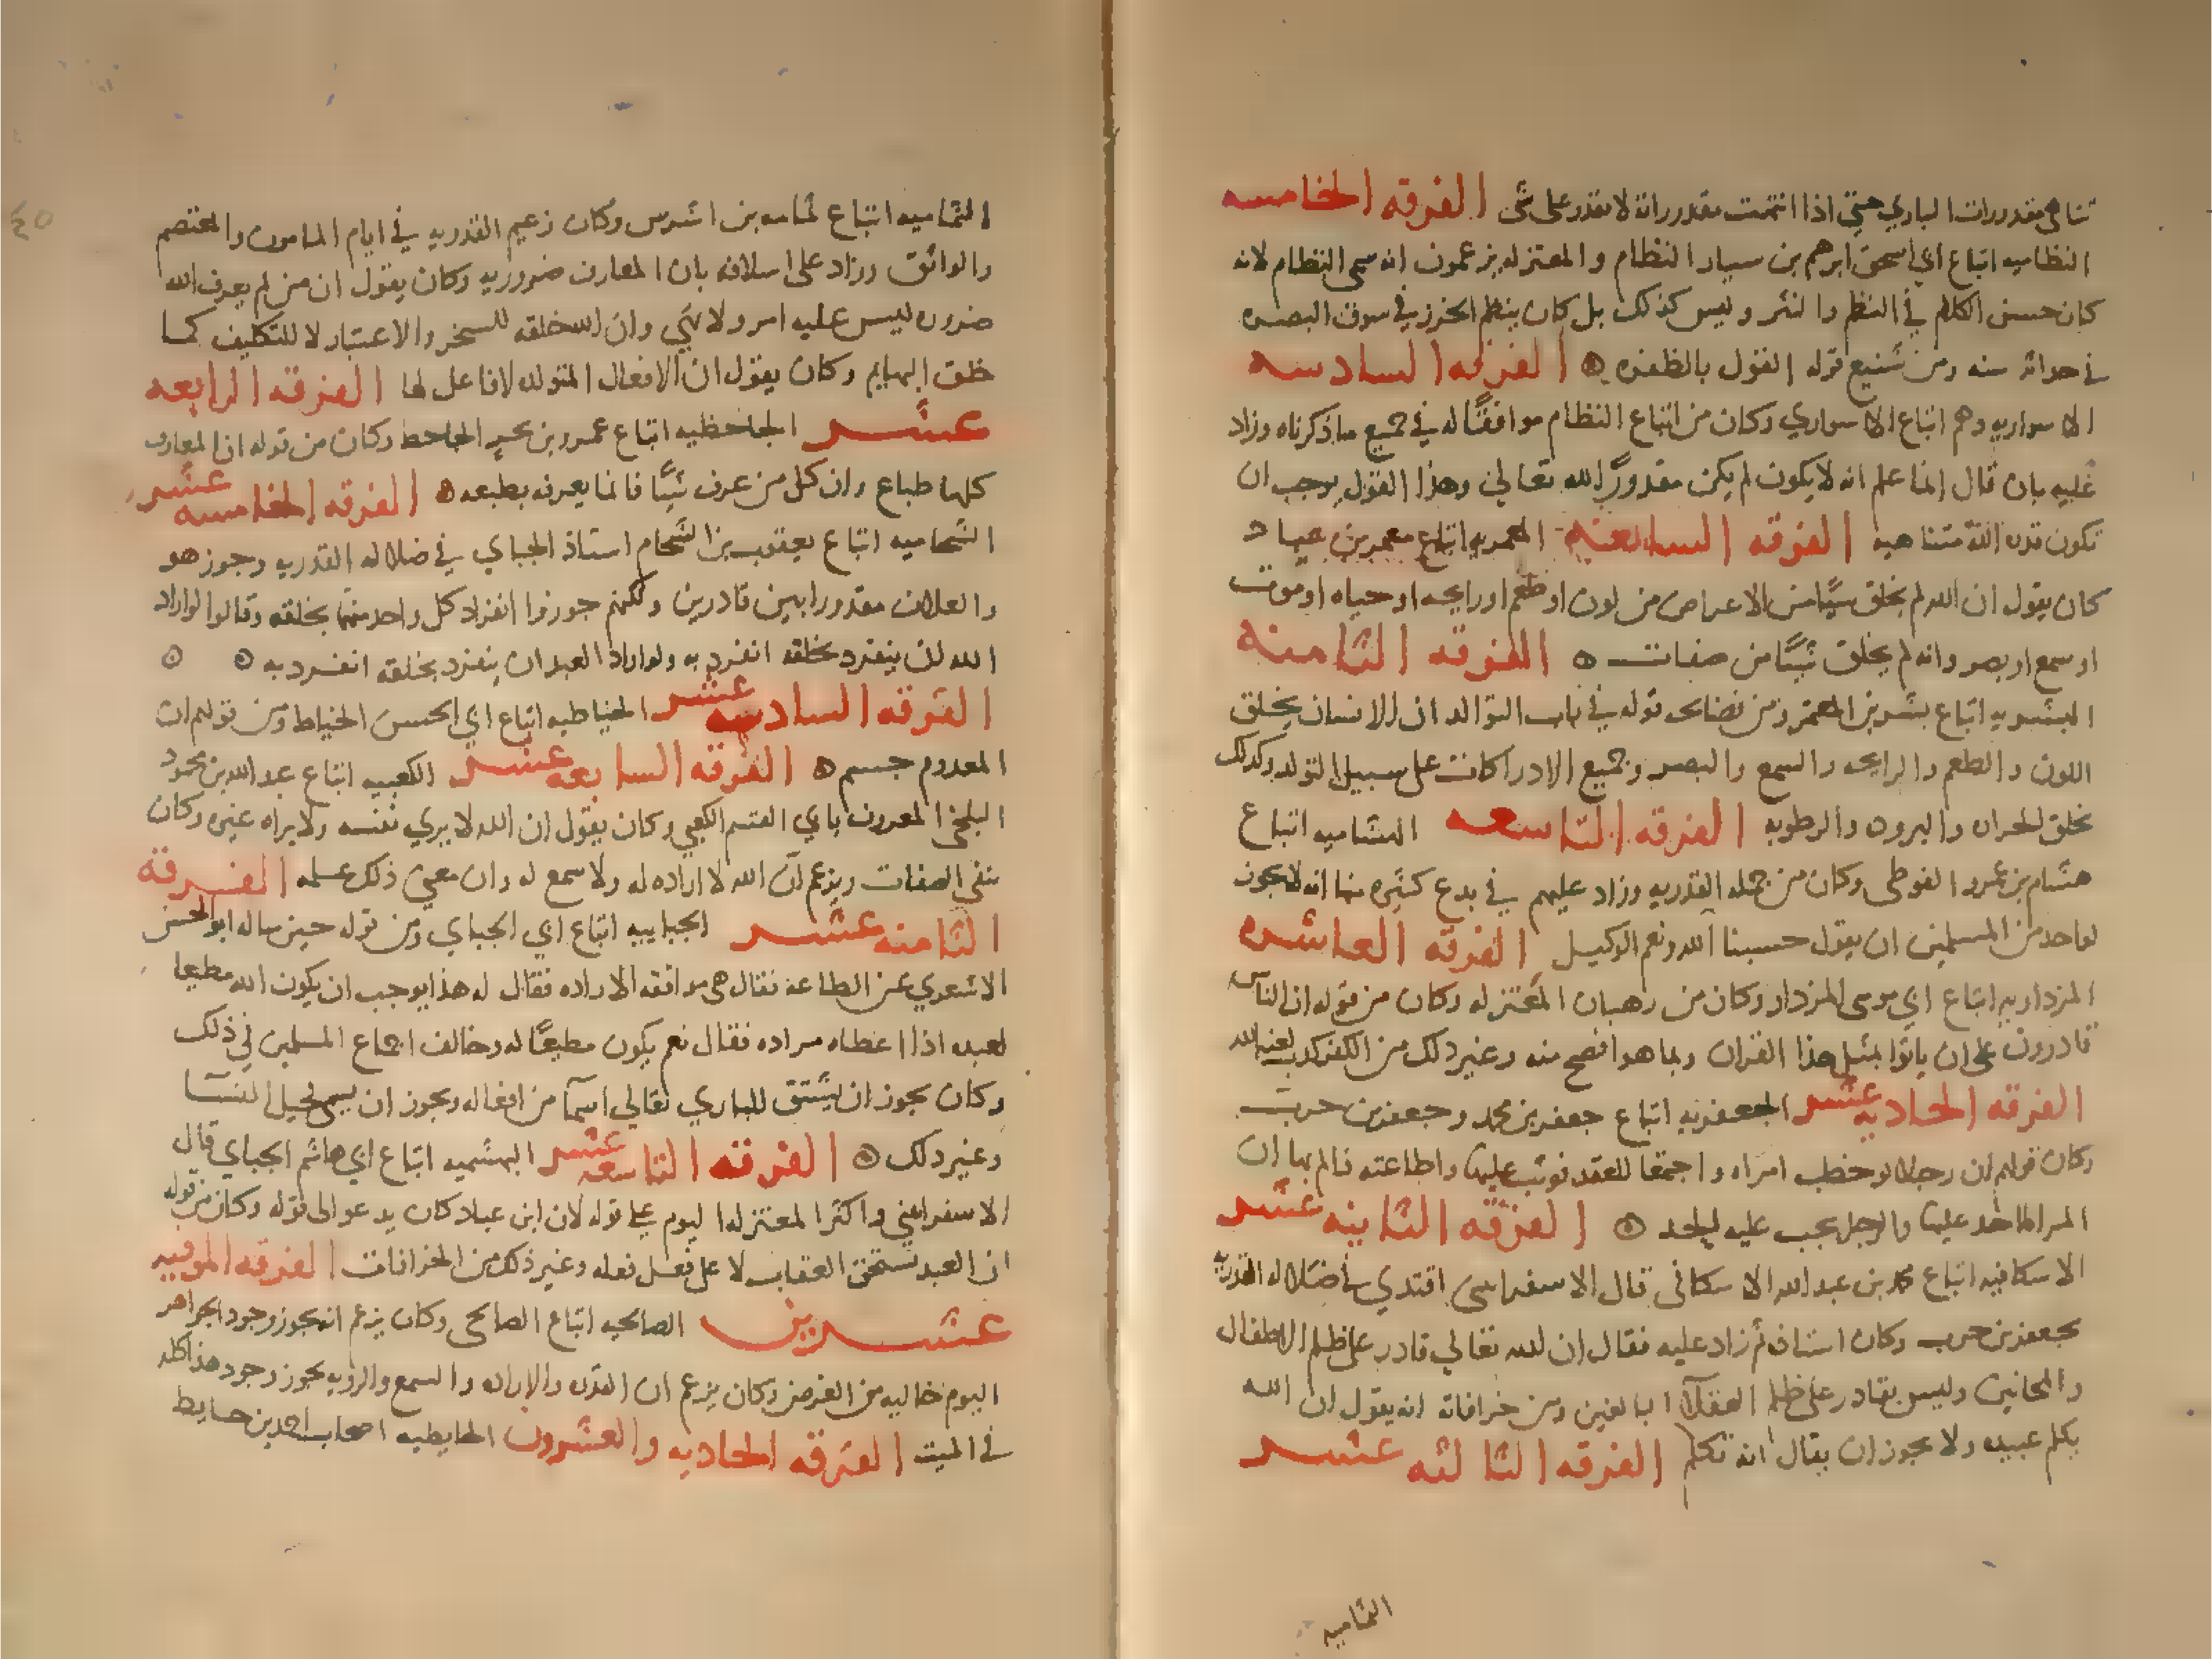 تناهى مقدورات الباري حتى اذا انتهت مقدوراته لا يقدر على شى الفرقه الخامسه
النظاميه اتباع ابي اسحق ابرهيم بن سيار النظام والمعتزله يزعمون انه سمى النظام لانه
كان حسن الكلام في النظم والنثر وليس كذلك بل كان ينظم الخرز في سوق البصره
في حداثه سنه ومن شنيع قوله القول بالطفره ۞ الفرقه السادسه
الاسواريه وهم اتباع الاسواري وكان من اتباع النظام موافقًا له في جميع ما ذكرناه وزاد
عليه بان قال انما علم انه لا يكون لم يكن مقدورًا لله تعالى وهذا القول يوجب ان
تكون قدره الله متناهيه الفرقه السابعه المعمريه اتباع معمر بن عباد
كان يقول ان الله لم يخلق شيًا من الاعراض من لون او طعم او رايحه او حياه او موت
او سمع او بصر وانه لم يخلق شيًا من صفات ۞ الفرقه الثامنه
البشريه اتباع بشر بن المعتمر ومن فضايحه قوله في باب التوالد ان الانسان يخلق
اللون والطعم والرايحه والسمع والبصر وجميع الادراكات على سبيل التولد وكذلك
يخلق الحراره والبروده والرطوبه الفرقه التاسعه الهشاميه اتباع
هشام بن عمرو الفوطى وكان من جمله القدريه وزاد عليهم في بدع كثيره منها انه لا يجوز
لواحد من المسلمين ان يقول حسبنا الله ونعم الوكيل الفرقه العاشره
المزداريه اتباع ابي موسى المزدار وكان من رهبان المعتزله وكان من قوله ان الناس
قادرون على ان ياتوا بمثل هذا القران وبما هو افصح منه وغير ذلك من الكفر كذب لعنه الله
الفرقه الحاديه عشر الجعفريه اتباع جعفر بن محمد وجعفر بن حرب
وكان قولهم ان رجلا لو خطب امراه واجتمعا للعقد فوثب عليها واطاعته فالم بها ان
المراه لا حد عليها والرجل يجب عليه الحد ۞ الفرقه الثانيه عشر
الاسكافيه اتباع محمد بن عبد الله الاسكافى قال الاسفراينى اقتدي في ضلاله القدريه
بجعفر بن حرب وكان استاذه ثم زاد عليه فقال ان لله تعالى قادر على ظلم الاطفال
والمجانين وليس بقادر على ظلم العقلا البالغين ومن خرافاته انه يقول ان الله
يكلم عبيده ولا يجوز ان يقال انه تكلم الفرقه الثالثه عشر
الثماميه
الثماميه اتباع ثمامه بن اشرس وكان زعيم القدريه في ايام المامون والمعتصم
والواثق وزاد على اسلافه بان المعارف ضروريه وكان يقول ان من لم يعرف الله
ضروره ليس عليه امر ولا نهي وان الله خلقه للسخر والاعتبار لا للتكليف كما
خلق البهايم وكان يقول ان الافعال المتولده لا فاعل لها الفرقه الرابعه
عشر الجاحظيه اتباع عمرو بن بحر الجاحظ وكان من قوله ان المعارف
كلها طباع وان كل من عرف شيًا فانما يعرفه بطبعه ۞ الفرقه الخامسه عشر
الشحاميه اتباع يعقوب بن الشحام استاذ الجباي في ضلاله القدريه وجوز هو
والعلاف مقدورا بين قادرين ولكنهم جوزوا انفراد كل واحد منهما بخلقه وقالوا لو اراد
الله ان ينفرد بخلقه انفرد به ولو اراد العبد ان ينفرد بخلقه انفرد به ۞ ۞
الفرقه السادسه عشر الخياطيه اتباع ابي الحسن الخياط ومن قولهم ان
المعدوم جسم ۞ الفرقه السابعه عشر الكعبيه اتباع عبد الله بن محمود
البلخي المعروف بابي القسم الكعبي وكان يقول ان الله لا يري نفسه ولا يراه غيره وكان
ينفى الصفات ويزعم ان الله لا اراده له ولا سمع له وان معنى ذلك علمه الفرقة
الثامنه عشر الجباييه اتباع ابي الجباي ومن قوله حين ساله ابو الحسن
الاشعري عن الطاعه فقال هى موافقه الاراده فقال له هذا يوجب ان يكون الله مطيعا
لعبده اذا اعطاه مراده فقال نعم يكون مطيعًا له وخالف اجماع المسلمين في ذلك
وكان يجوز ان يشتق للباري تعالى اسمآ من افعاله ويجوز ان يسمى محبل النسآ
وغير ذلك ۞ الفرقه التاسعه عشر البهشميه اتباع ابي هاشم الجباي قال
الاسفرايني واكثر المعتزله اليوم على قوله لان ابن عباد كان يدعو الى قوله وكان من قوله
ان العبد يستحق العقاب لا على فعل فعله وغير ذلك من الخرافات الفرقه الموفيه
عشرين الصالحيه اتباع الصالحى وكان يزعم انه يجوز وجود الجواهر
اليوم خاليه من العرض وكان يزعم ان القدره والاراده والسمع والرويه يجوز وجود هذا كله
في الميت الفرقه الحاديه والعشرون الحايطيه اصحاب احمد بن حايط